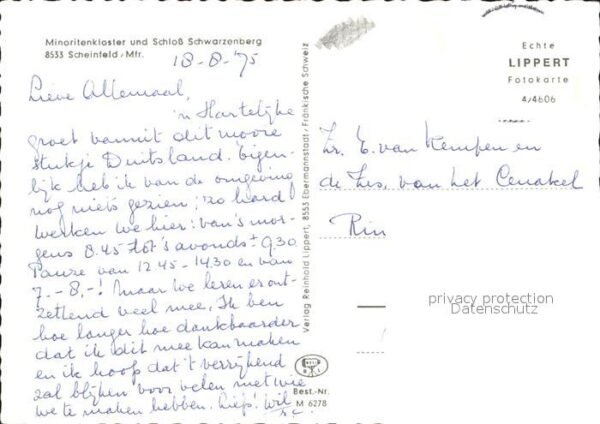 Minoritenkloster und Schloß Schwarzenberg
8533 Scheinfeld/Mfr.
18-8-'75
Lieve Allemaal,
'n Hartelijke
groet vanuit dit mooie
stukje Duitsland. Eigen-
lijk heb ik van de omgeving
nog niets gezien; zo hard
werken we hier: van 's mor-
gens 8.45 tot 's avonds ± 9.30.
Pauze van 12.45 - 14.30 en van
7. - 8. -! Maar we leren er ont-
zettend veel mee. Ik ben
hoe langer hoe dankbaarder
dat ik dit mee kan maken
en ik hoop dat 't verrijkend
zal blijken voor velen met wie
we te maken hebben. Liefs! Wil
Verlag Reinhold Lippert, 8553 Ebermannstadt/Fränkische Schweiz
Best.-Nr.
M 6278
Echte
LIPPERT
Fotokarte
4/4606
Zr. E. van Kempen en
de Zrs. van het Cenakel
Rin
privacy protection
Datenschutz